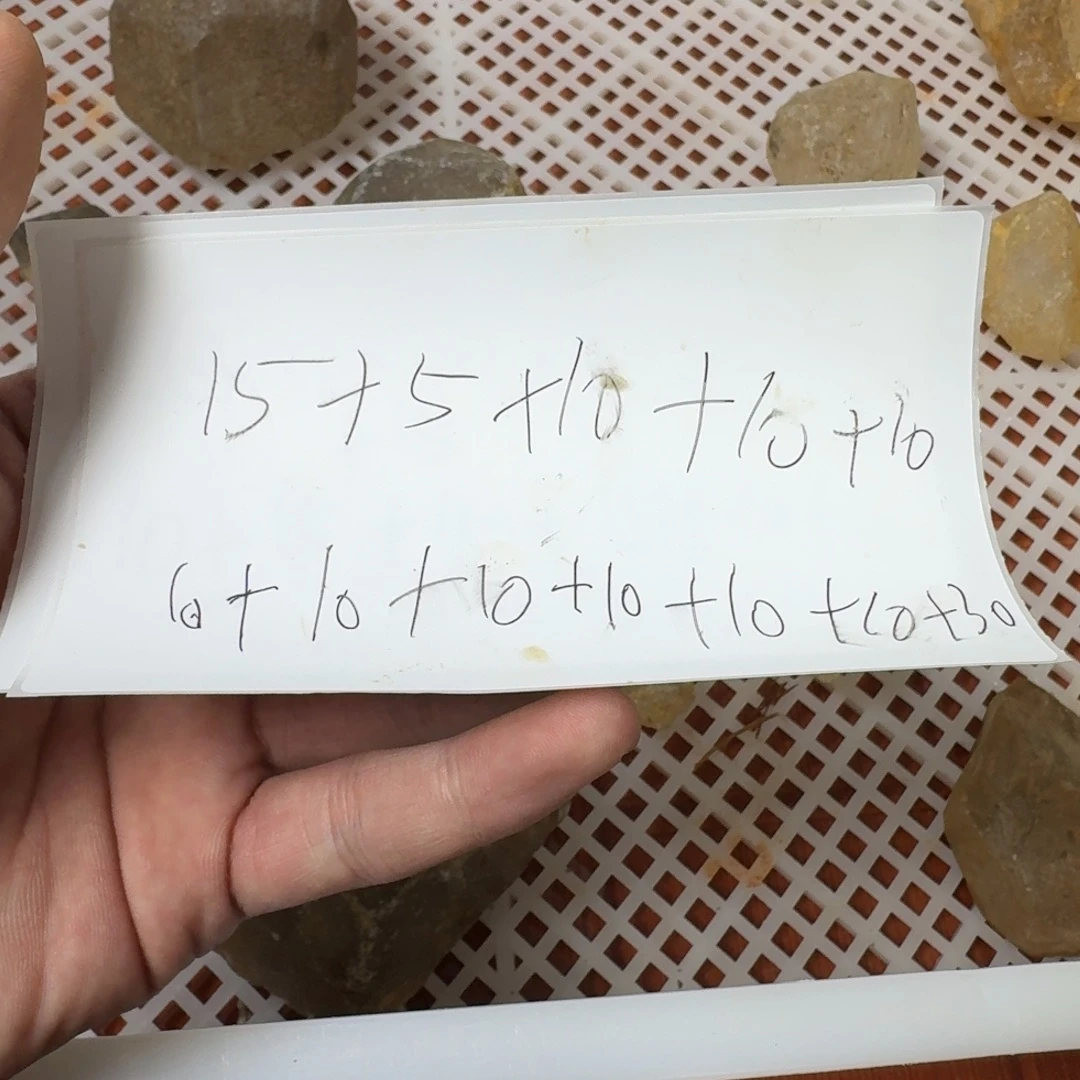 15+5+10+10+10
10+10+10+10+10+10+30